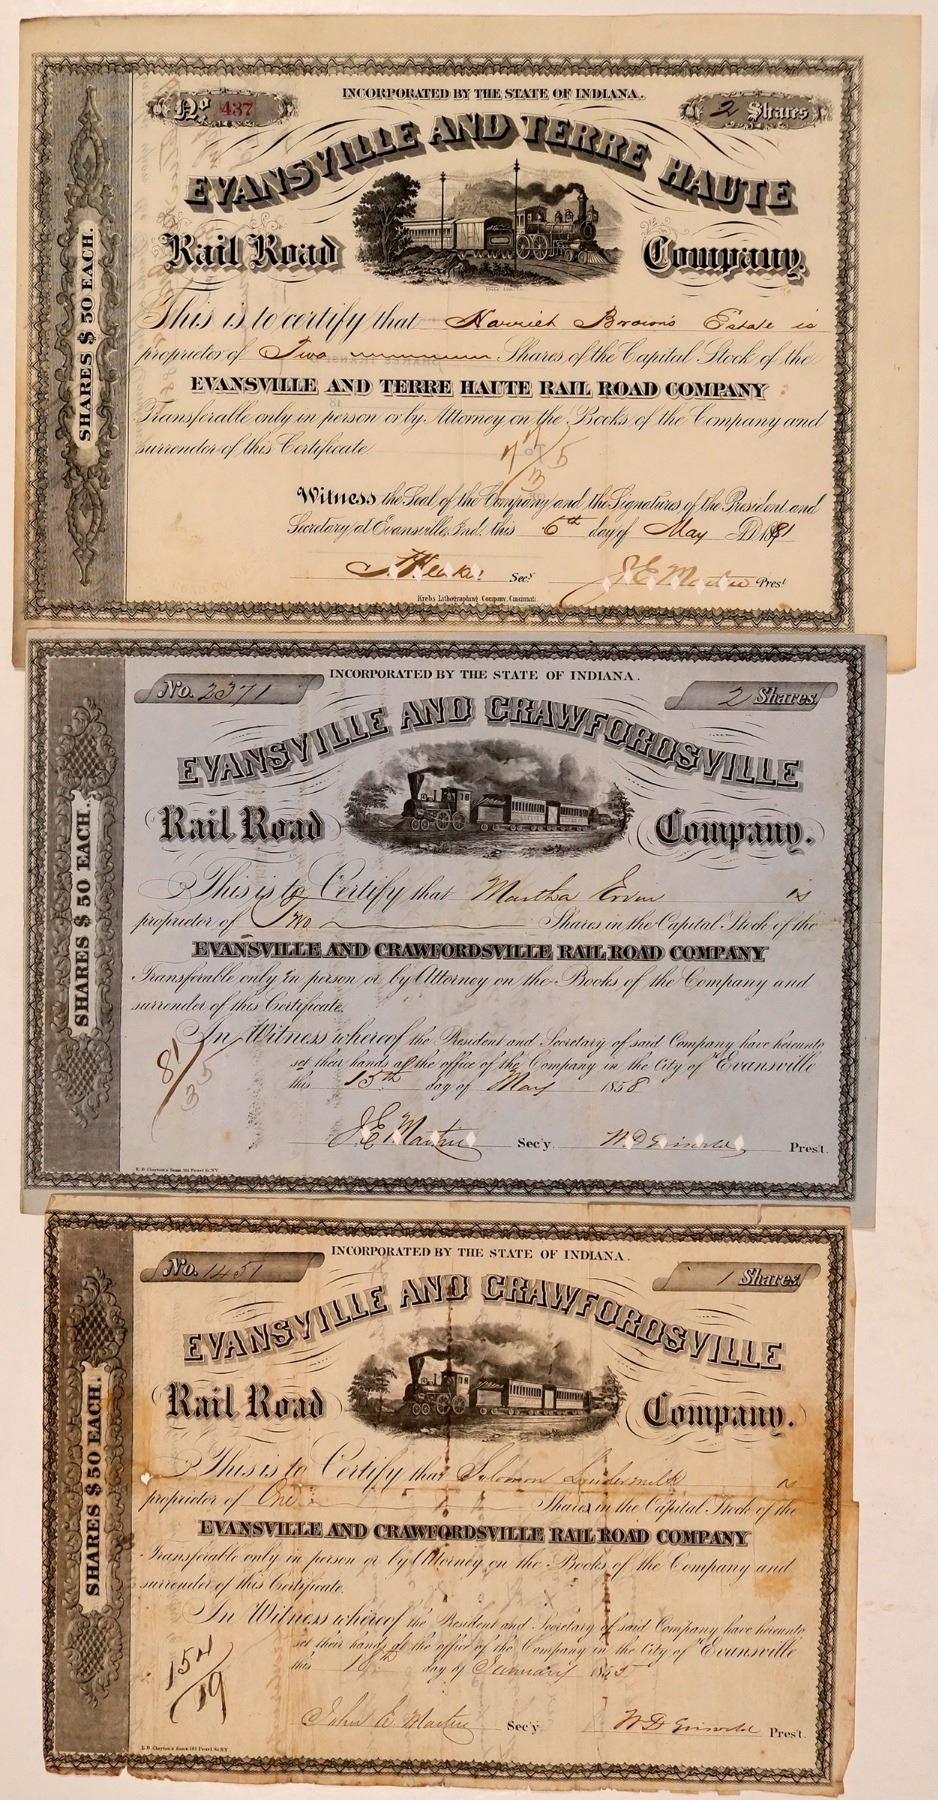 No 437
INCORPORATED BY THE STATE OF INDIANA.
2 Shares
EVANSVILLE AND TERRE HAUTE
Rail Road Company,
SHARES $ 50 EACH.
This is to certify that Harriet Brown's Estate is
proprietor of Two Shares of the Capital Stock of the
EVANSVILLE AND TERRE HAUTE RAIL ROAD COMPANY
Transferable only in person or by Attorney on the Books of the Company and
surrender of this Certificate
Witness the Seal of the Company and the Signatures of the President and
Secretary at Evansville, Ind. this 6th day of May AD 1881
Secy. J. E. Martin Prest
Krebs Lithographing Company, Cincinnati.
No. 2371
INCORPORATED BY THE STATE OF INDIANA.
2 Shares
EVANSVILLE AND CRAWFORDSVILLE
Rail Road Company.
SHARES $ 50 EACH.
This is to Certify that Martha Ervin is
proprietor of Two Shares in the Capital Stock of the
EVANSVILLE AND CRAWFORDSVILLE RAIL ROAD COMPANY
Transferable only in person or by Attorney on the Books of the Company and
surrender of this Certificate.
In Witness whereof the President and Secretary of said Company have hereunto
set their hands at the office of the Company in the City of Evansville
this 15th day of May 1858
81/35
J. E. Martin Sec'y W D Griswold Pres't.
E.B. Clayton's Sons 161 Pearl St. N.Y.
No. 1451
INCORPORATED BY THE STATE OF INDIANA.
1 Shares
EVANSVILLE AND CRAWFORDSVILLE
Rail Road Company.
SHARES $ 50 EACH.
This is to Certify that Solomon Loudermilk is
proprietor of One Shares in the Capital Stock of the
EVANSVILLE AND CRAWFORDSVILLE RAIL ROAD COMPANY
Transferable only in person or by Attorney on the Books of the Company and
surrender of this Certificate.
In Witness whereof the President and Secretary of said Company have hereunto
set their hands at the office of the Company in the City of Evansville
this 18th day of January 1855
154/19
John E. Martin Sec'y W D Griswold Pres't.
E.B. Clayton's Sons 161 Pearl St. N.Y.